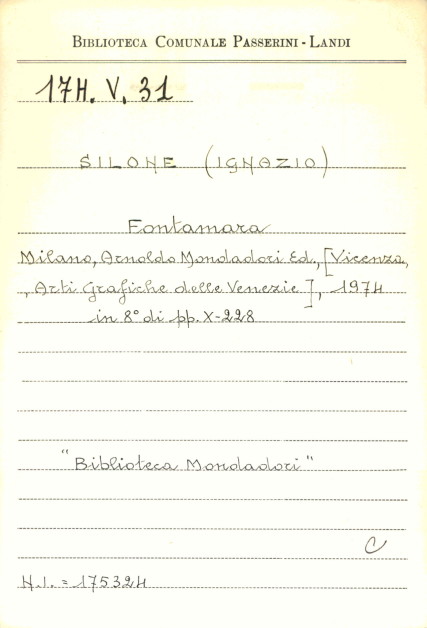 BIBLIOTECA COMUNALE PASSERINI - LANDI
17H. V. 31
SILONE (IGNAZIO)
Fontamara
Milano, Arnoldo Mondadori Ed., [Vicenza,
, Arti Grafiche delle Venezie], 1974
in 8° di pp. X-228
"Biblioteca Mondadori"
C
N.I. = 175324